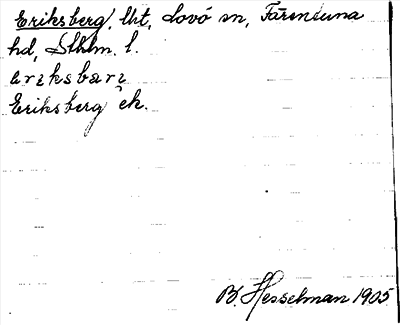 Eriksberg, lht, Lovö sn, Färentuna
hd, Sthlm. l.
erıksbærı̨
Eriksberg ek.
B. Hesselman 1905